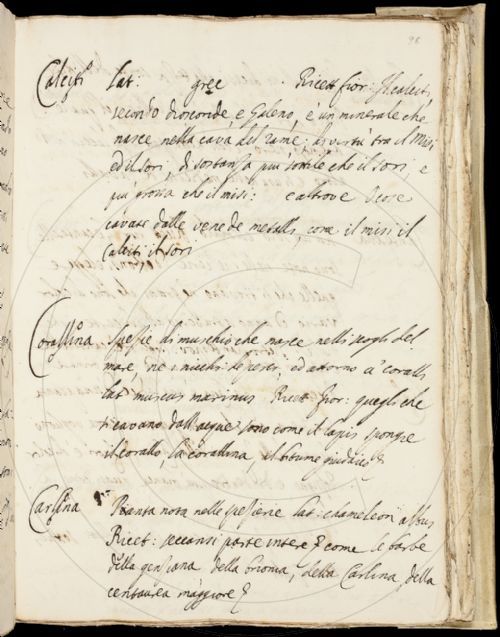 98
Calciti lat: grece Ricett fior: Il calciti,
secondo dioscoride, e Galeno, è un minerale che
nasce nella cava del rame; di virtù tra il Misi
ed il sori, di sostanza più sottile che il sori, e
più grossa che il misi: e altrove Score
cavate dalle vene de metalli, come il misi il
calciti il sori
Corallina spezie di muschio che nasce nelli scogli del
mare, ne i nicchi de pesci, ed attorno a' coralli
lat muscus marinus Ricett fior: quegli che
si cavano dall'acque sono come il lapis spongie
il corallo, la corallina, il bitume giudaico
Carlina Pianta nota nelle spezierie lat: chameleon albus
Ricet: seccansi parte intere come le barbe
della genziana della brionia, della Carlina della
centaurea maggiore